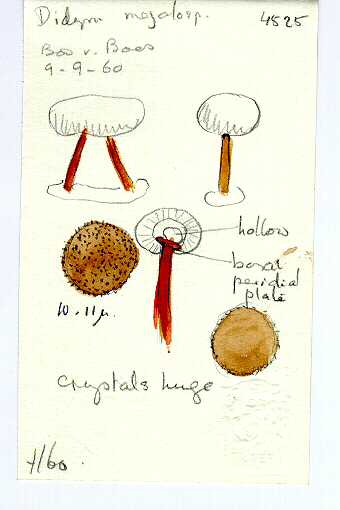 Didym megalosp. 4525
Bos v. Boas
9-9-60
hollow
basal
peridial
plate
10-11µ.
Crystals huge